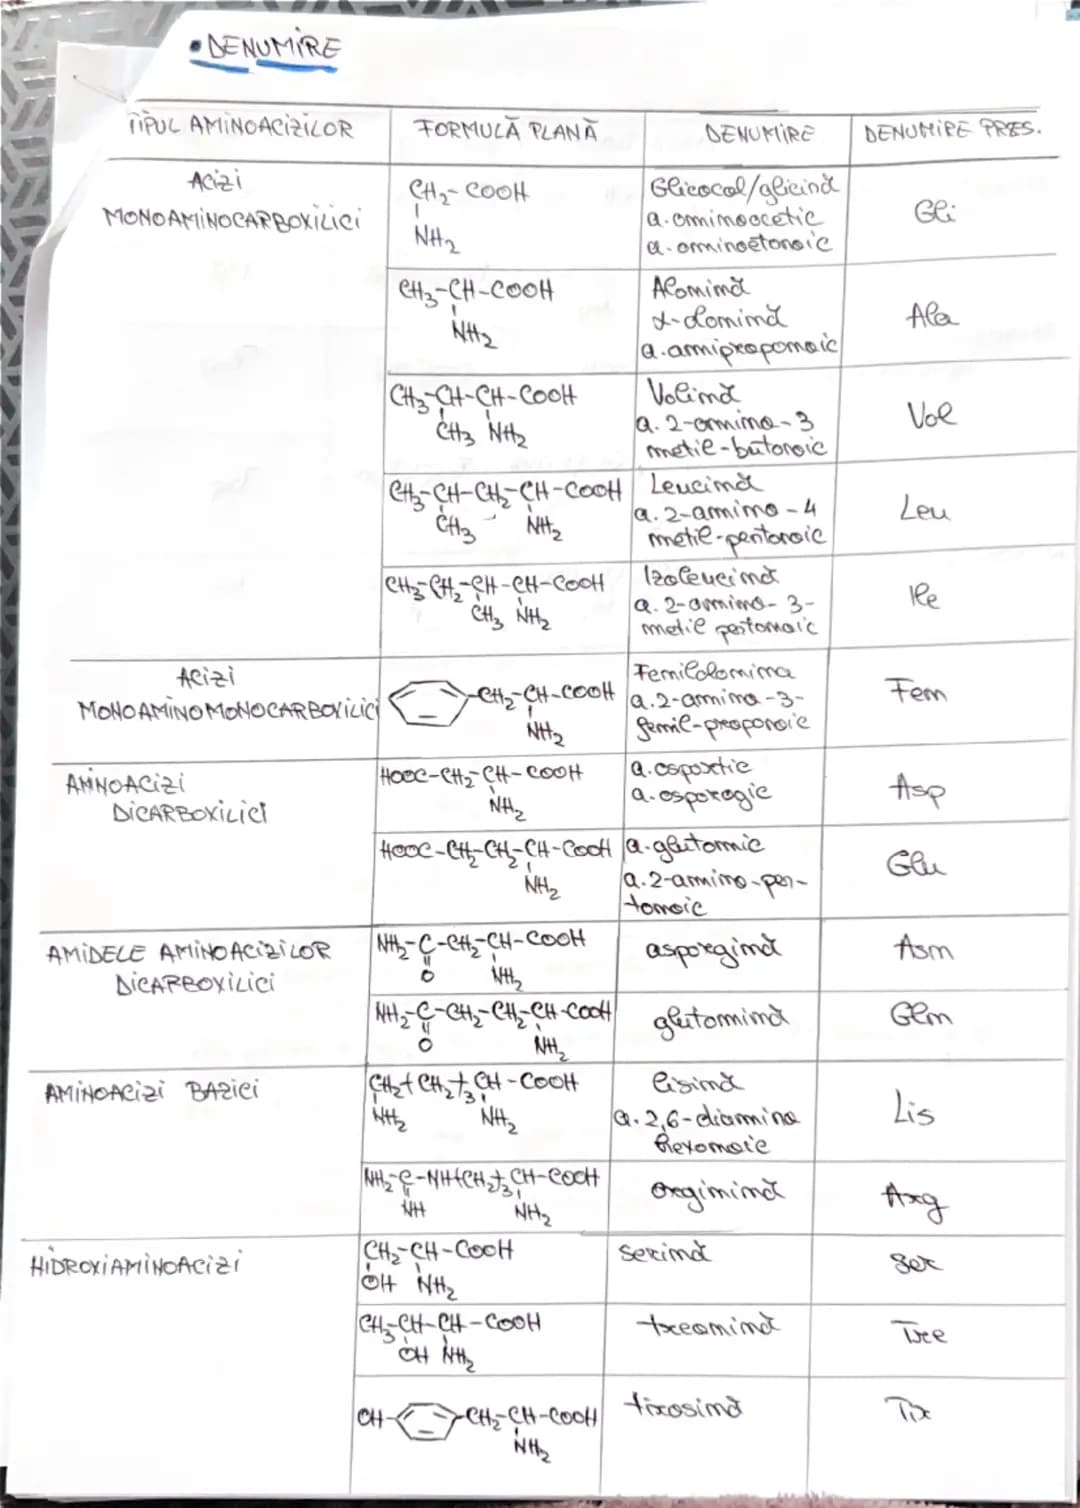 • DENUMIRE
TIPUL AMINOACIZILOR FORMULĂ PLANĂ DENUMIRE DENUMIRE PRES.
ACIZI
MONOAMINOCARBOXILICI
CH2-COOH
NH2
Glicocol/glicină
a. aminoacetic
a. aminoetanoic
Gli
CH3-CH-COOH
NH2
Alanină
α-lanină
a. amipropanoic
Ala
CH3-CH-CH-COOH
CH3 NH2
Valină
a. 2-amino-3
metil-butanoic
Val
CH3-CH-CH2-CH-COOH
CH3 NH2
Leucină
a. 2-amino-4
metil-pentanoic
Leu
CH3-CH2-CH-CH-COOH
CH3 NH2
Izoleucină
a. 2-amino-3-
metil pentanoic
Ile
ACIZI
MONOAMINOMONOCARBOXILICI
-CH2-CH-COOH
NH2
Fenilalanina
a. 2-amino-3-
fenil-propanoic
Fen
AMNOACIZI
DICARBOXILICI
HOOC-CH2-CH-COOH
NH2
a. aspartic
a. asparagic
Asp
HOOC-CH2-CH2-CH-COOH
NH2
a. glutamic
a. 2-amino-pen-
tanoic
Glu
AMIDELE AMINOACIZILOR
DICARBOXILICI
NH2-C-CH2-CH-COOH
O NH2
asparagină
Asn
NH2-C-CH2-CH2-CH-COOH
O NH2
glutamină
Gln
AMINOACIZI BAZICI
CH2+CH2+3CH-COOH
NH2 NH2
lisină
a. 2,6-diamino
hexanoic
Lis
NH2-C-NH+CH2+3CH-COOH
NH NH2
arginină
Arg
HIDROXIAMINOACIZI
CH2-CH-COOH
OH NH2
serină
Ser
CH3-CH-CH-COOH
OH NH2
treonină
Tre
OH- -CH2-CH-COOH
NH2
tirosină
Tir